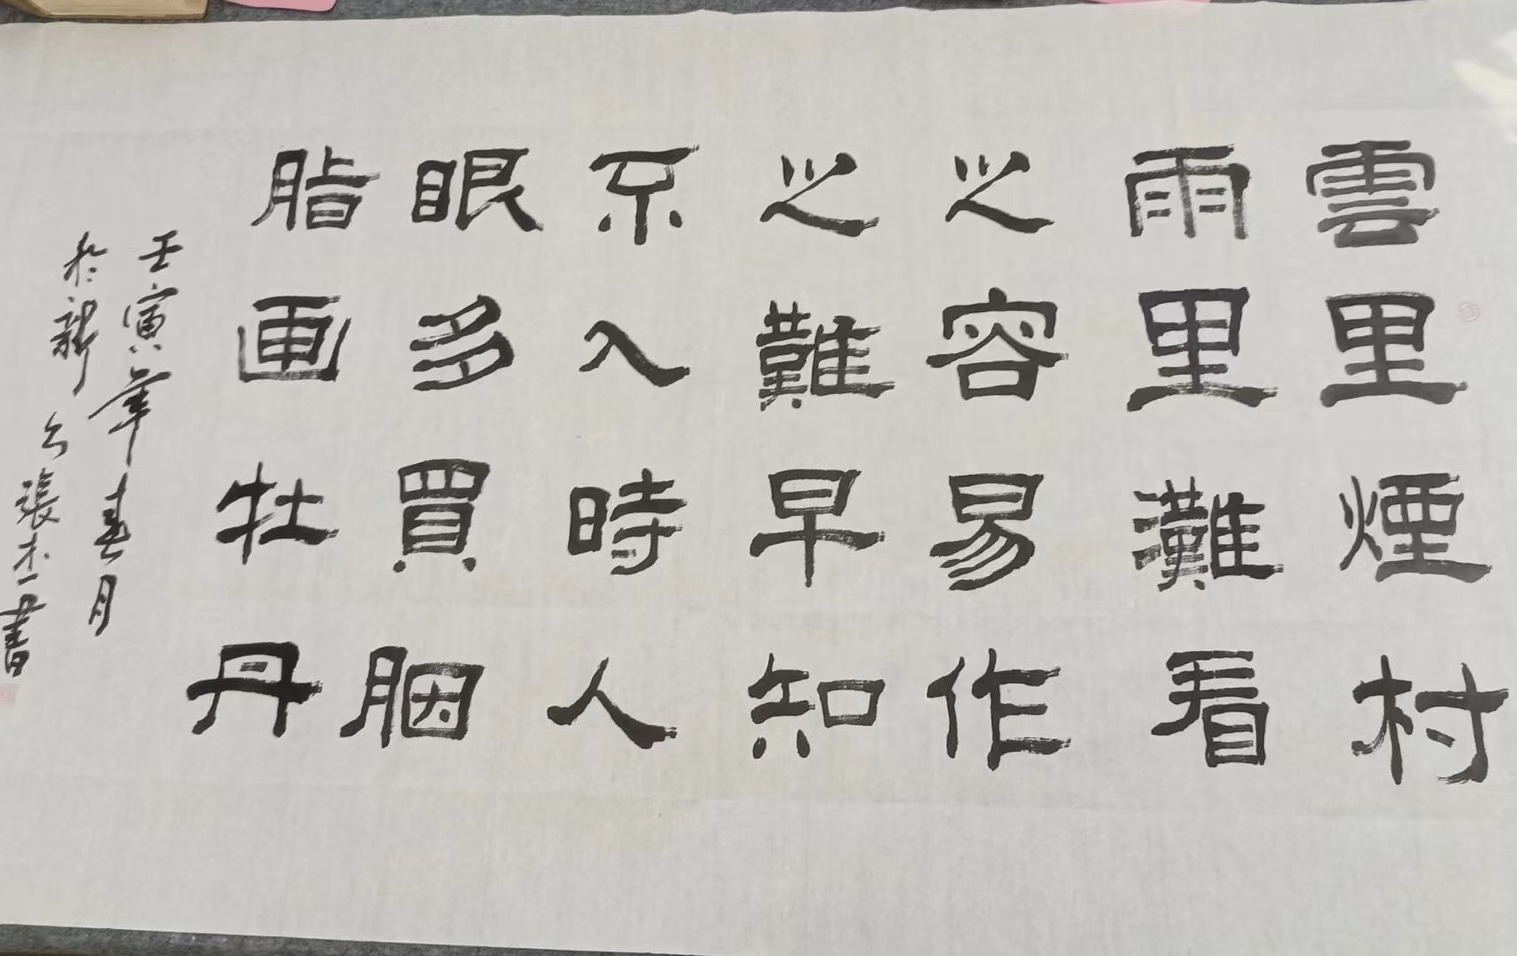 雲里煙村
雨里灘看
之容易作
之難早知
不入時人
眼多買胭
脂画牡丹
壬寅年春月
於新 張 書